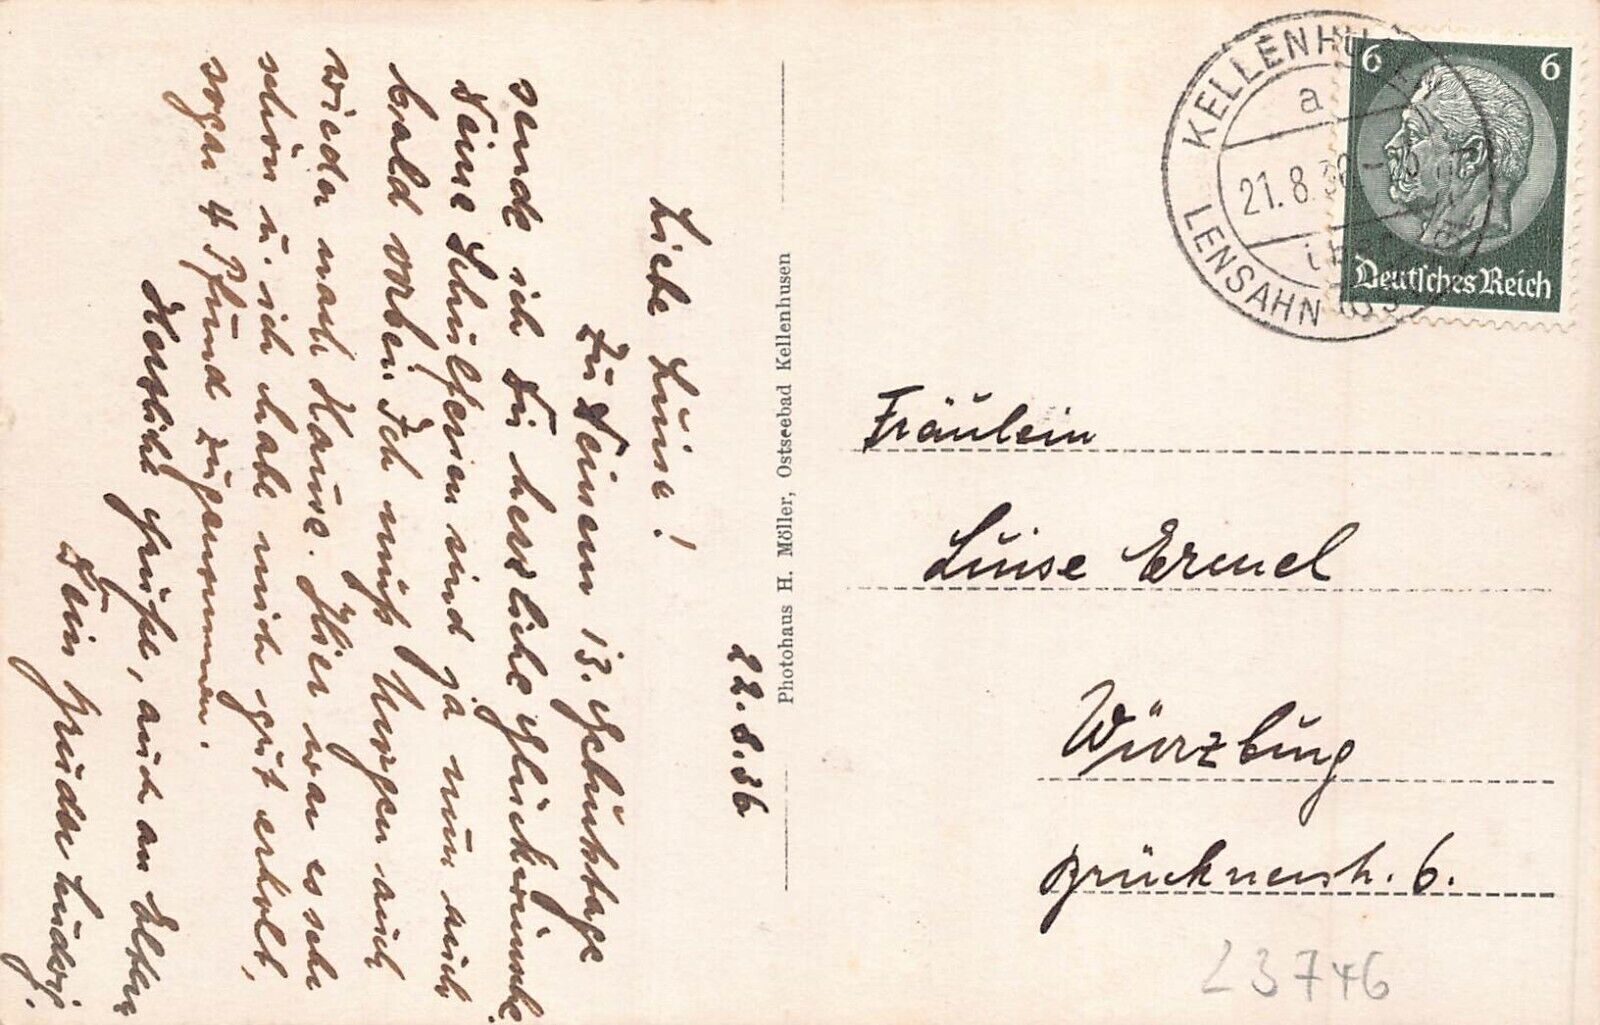 22.8.36
Liebe Luise!
Zu Deinem 13. Geburtstage
sende ich Dir herzliche Glückwünsche.
Deine Schulferien sind ja nun auch
bald vorbei. Ich muß Morgen auch
wieder nach Hause. Hier war es sehr
schön u. ich habe mich gut erholt,
sogar 4 Pfund zugenommen.
Herzliche Grüße, auch an Eltern
Dein Bruder Ludwig.
Photohaus H. Möller, Ostseebad Kellenhusen
KELLENHUSEN
a
21.8.36
LENSAHN
6 6
Deutsches Reich
Fräulein
Luise
Würzburg
Brücknerstr. 6.
23746